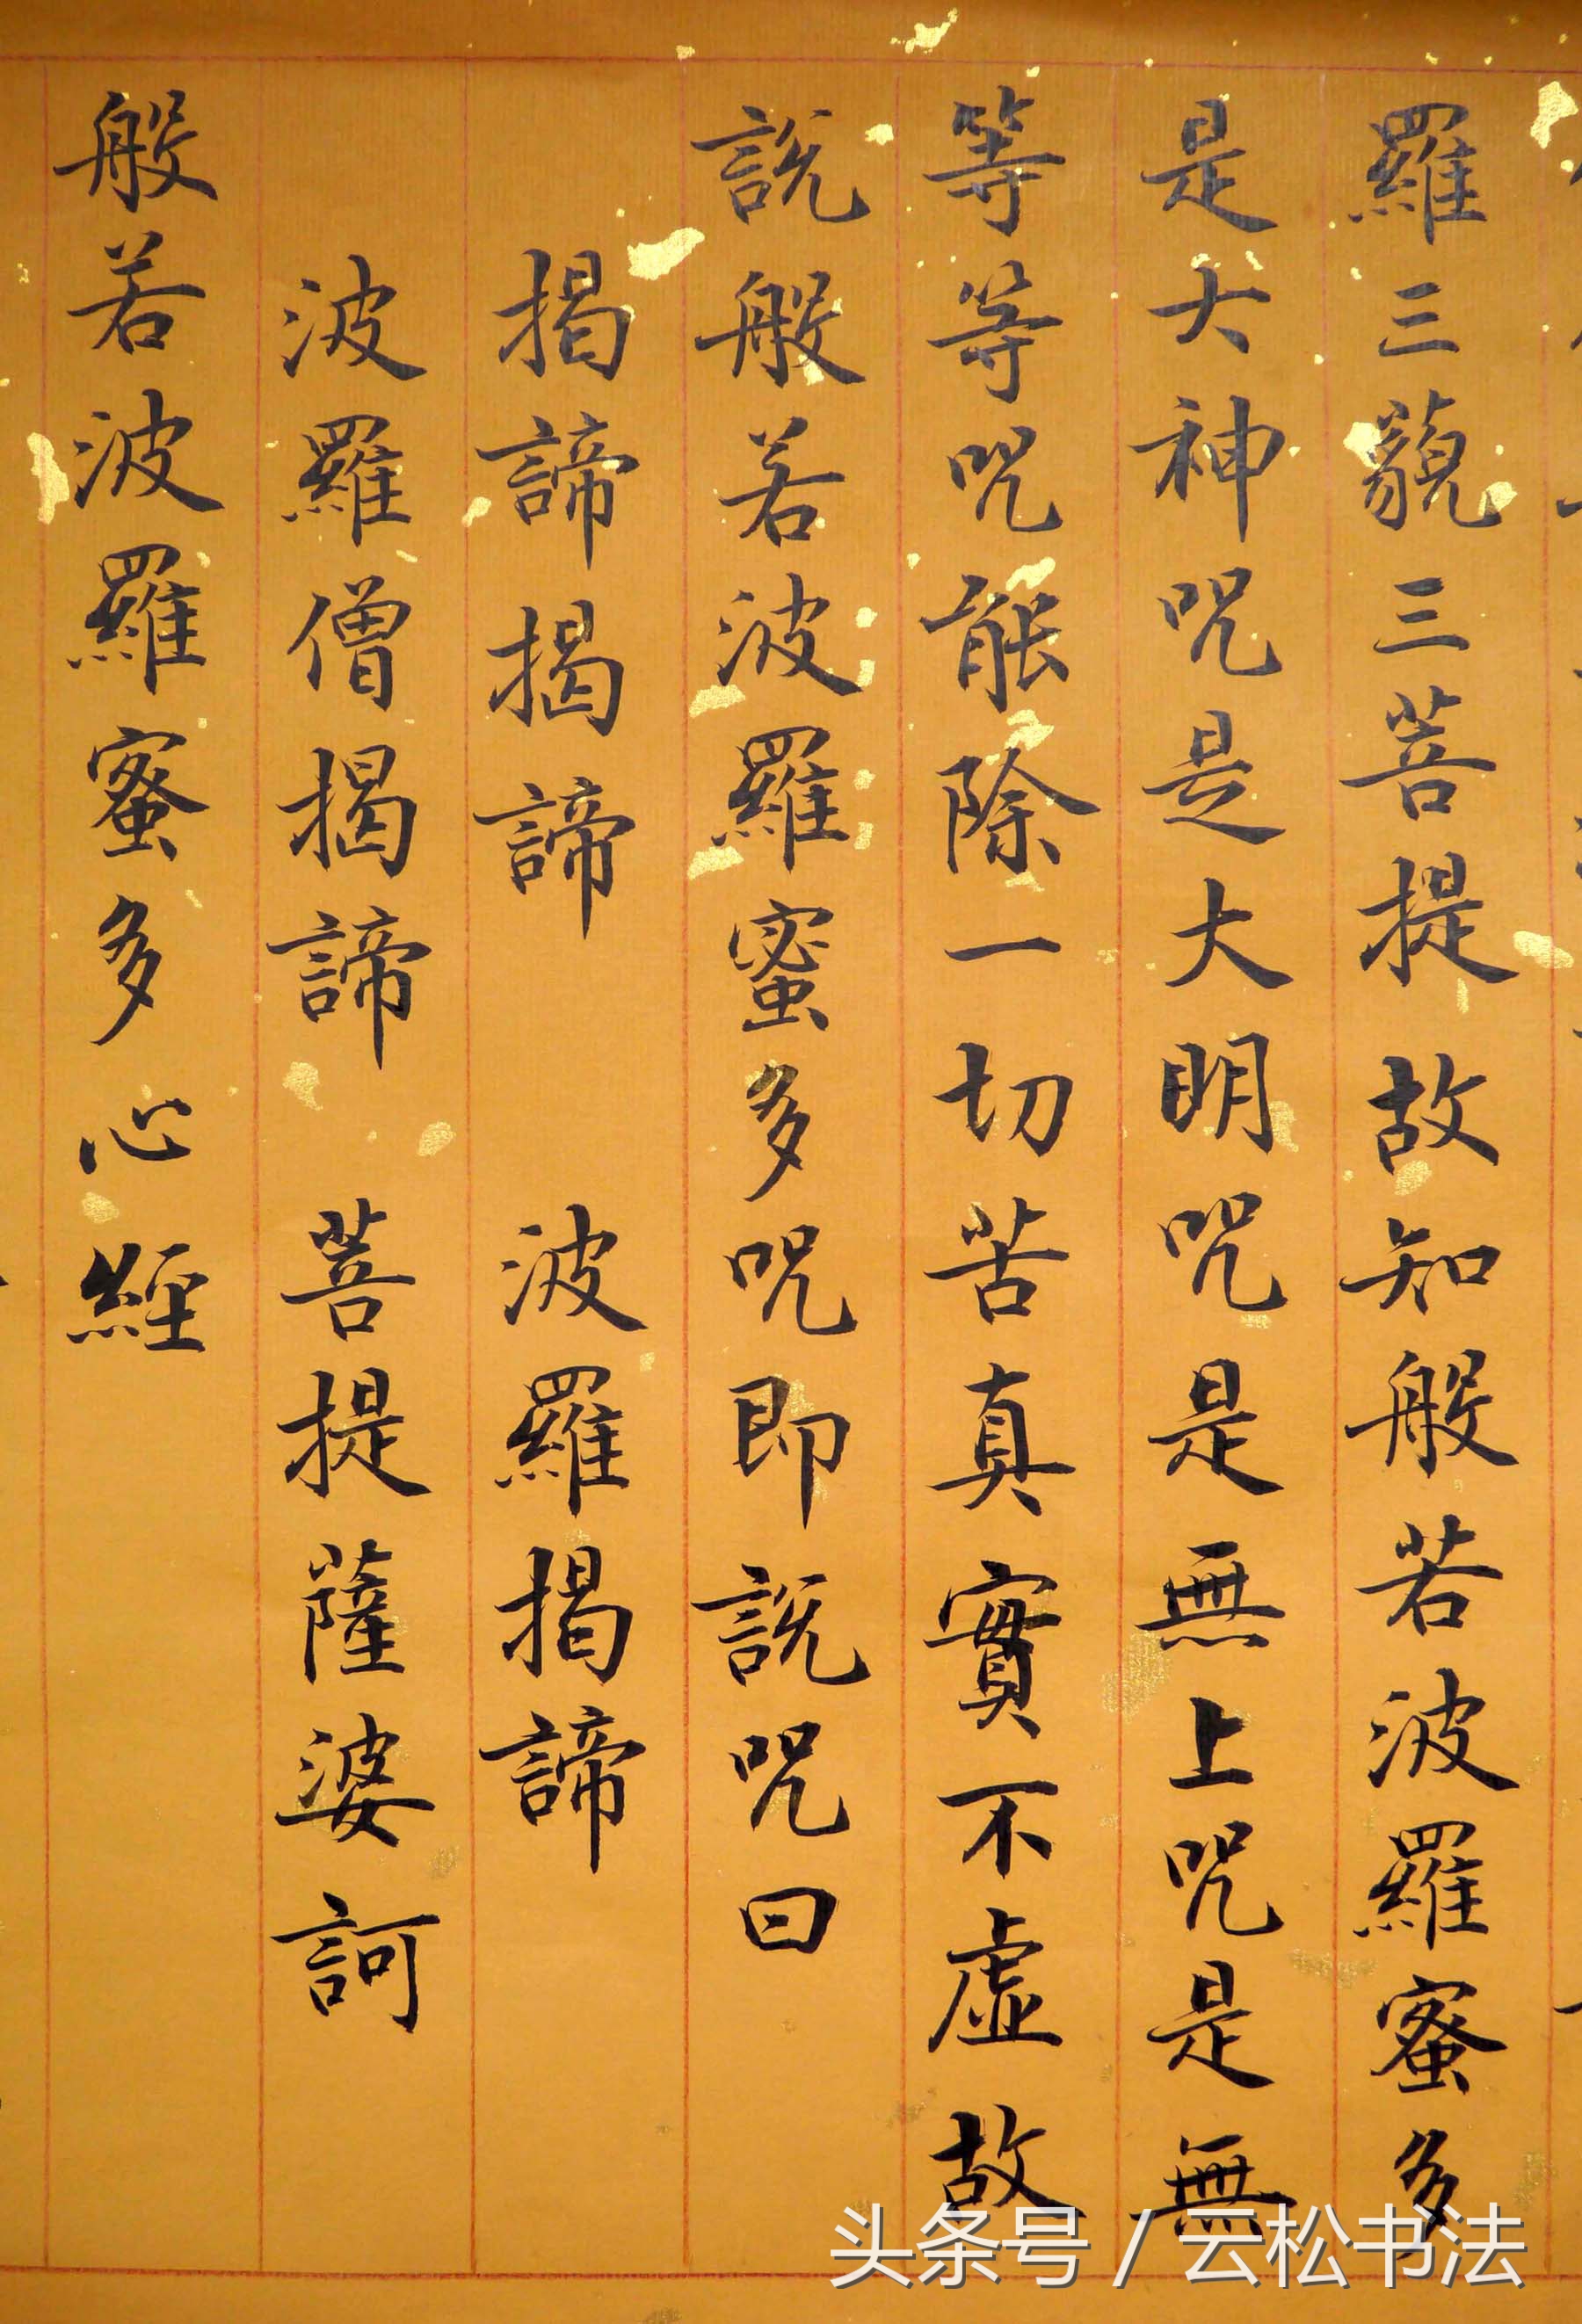 羅三藐三菩提故知般若波羅蜜多
是大神咒是大明咒是無上咒是無
等等咒能除一切苦真實不虛故
說般若波羅蜜多咒即說咒曰
揭諦揭諦 波羅揭諦
波羅僧揭諦 菩提薩婆訶
般若波羅蜜多心經
头条号 / 云松书法